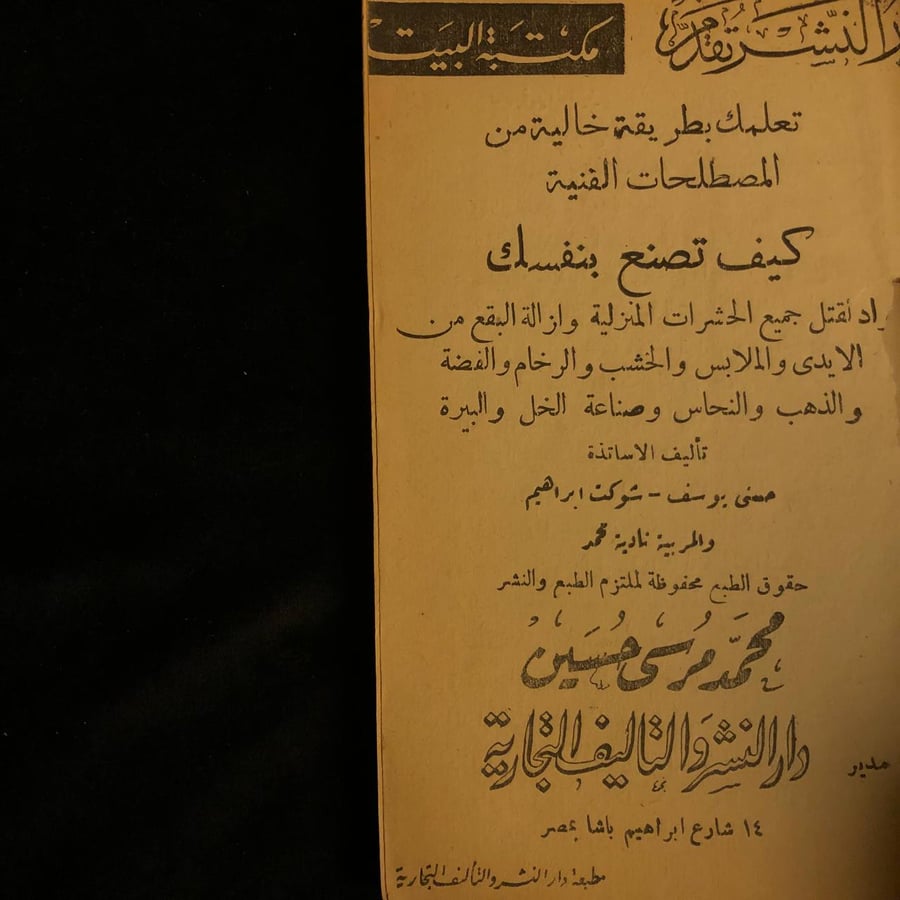 النشر تقدم
مكتبة البيت
تعلمك بطريقة خالية من
المصطلحات الفنية
كيف تصنع بنفسك
لقتل جميع الحشرات المنزلية وازالة البقع من
الايدى والملابس والخشب والرخام والفضة
والذهب والنحاس وصناعة الخل والبيرة
تأليف الاساتذة
يوسف - شوكت ابراهيم
والمربية نادية محمد
حقوق الطبع محفوظة لملتزم الطبع والنشر
محمد مرسى حسين
مدير
دار النشر والتاليف التجارية
١٤ شارع ابراهيم باشا بمصر
مطبعة دار النشر والتأليف التجارية